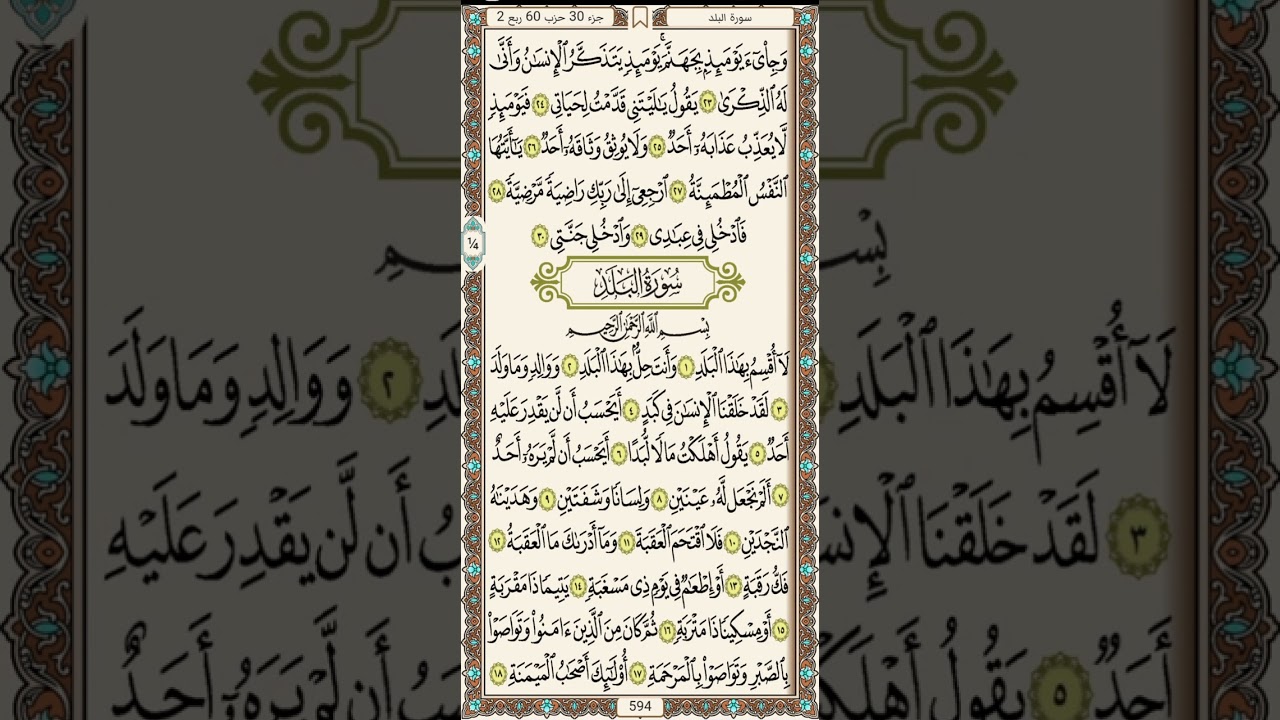 سورة البلد
جزء 30 حزب 60 ربع 2
وَجِا۟ىٓءَ يَوْمَئِذِۭ بِجَهَنَّمَ ۚ يَوْمَئِذٍ يَتَذَكَّرُ ٱلْإِنسَٰنُ وَأَنَّىٰ
لَهُ ٱلذِّكْرَىٰ ٢٣ يَقُولُ يَٰلَيْتَنِى قَدَّمْتُ لِحَيَاتِى ٢٤ فَيَوْمَئِذٍ
لَّا يُعَذِّبُ عَذَابَهُۥٓ أَحَدٌ ٢٥ وَلَا يُوثِقُ وَثَاقَهُۥٓ أَحَدٌ ٢٦ يَٰٓأَيَّتُهَا
ٱلنَّفْسُ ٱلْمُطْمَئِنَّةُ ٢٧ ٱرْجِعِىٓ إِلَىٰ رَبِّكِ رَاضِيَةً مَّرْضِيَّةً ٢٨
فَٱدْخُلِى فِى عِبَٰدِى ٢٩ وَٱدْخُلِى جَنَّتِى ٣٠
¼
سُورَةُ البَلَدِ
بِسْمِ ٱللَّهِ ٱلرَّحْمَٰنِ ٱلرَّحِيمِ
لَآ أُقْسِمُ بِهَٰذَا ٱلْبَلَدِ ١ وَأَنتَ حِلٌّۢ بِهَٰذَا ٱلْبَلَدِ ٢ وَوَالِدٍ وَمَا وَلَدَ
٣ لَقَدْ خَلَقْنَا ٱلْإِنسَٰنَ فِى كَبَدٍ ٤ أَيَحْسَبُ أَن لَّن يَقْدِرَ عَلَيْهِ
أَحَدٌ ٥ يَقُولُ أَهْلَكْتُ مَالًا لُّبَدًا ٦ أَيَحْسَبُ أَن لَّمْ يَرَهُۥٓ أَحَدٌ
٧ أَلَمْ نَجْعَل لَّهُۥ عَيْنَيْنِ ٨ وَلِسَانًا وَشَفَتَيْنِ ٩ وَهَدَيْنَٰهُ
ٱلنَّجْدَيْنِ ١٠ فَلَا ٱقْتَحَمَ ٱلْعَقَبَةَ ١١ وَمَآ أَدْرَىٰكَ مَا ٱلْعَقَبَةُ ١٢
فَكُّ رَقَبَةٍ ١٣ أَوْ إِطْعَٰمٌ فِى يَوْمٍ ذِى مَسْغَبَةٍ ١٤ يَتِيمًا ذَا مَقْرَبَةٍ
١٥ أَوْ مِسْكِينًا ذَا مَتْرَبَةٍ ١٦ ثُمَّ كَانَ مِنَ ٱلَّذِينَ ءَامَنُوا۟ وَتَوَاصَوْا۟
بِٱلصَّبْرِ وَتَوَاصَوْا۟ بِٱلْمَرْحَمَةِ ١٧ أُو۟لَٰٓئِكَ أَصْحَٰبُ ٱلْمَيْمَنَةِ ١٨
594